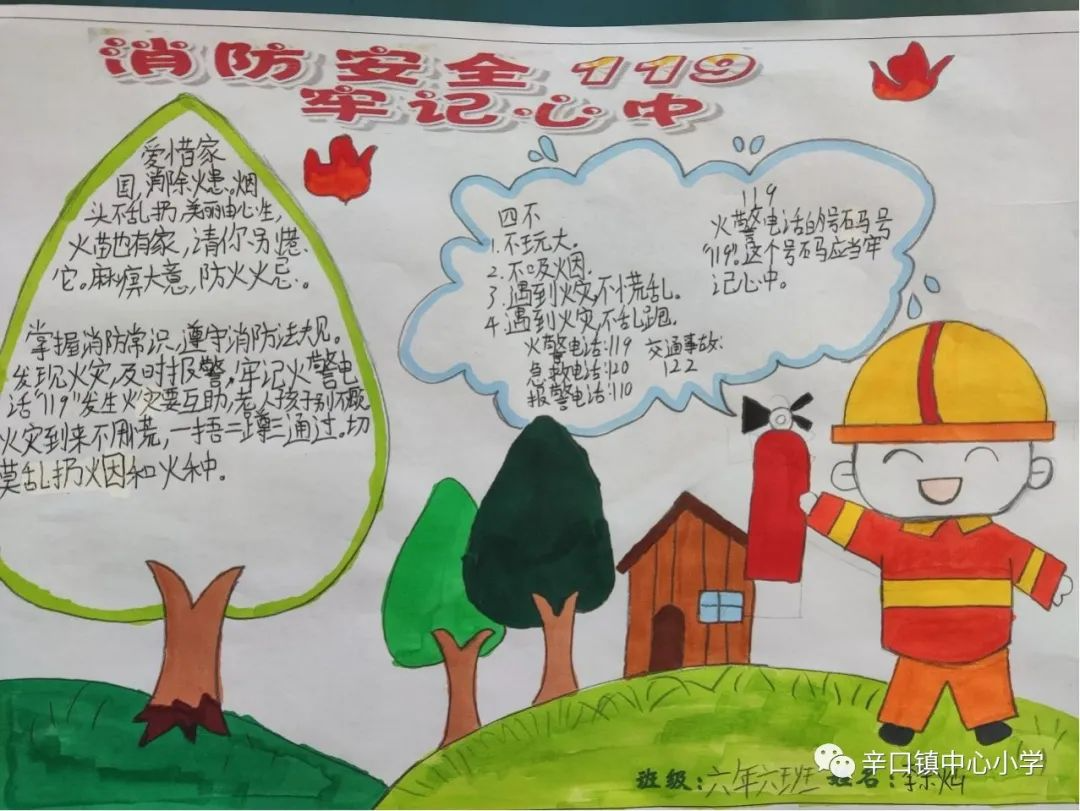 消防安全119
牢记心中
爱惜家
国,消除火患。烟
头不乱扔,美丽由心生,
火苗也有家,请你另惹
它。麻痹大意,防火火忌。
掌握消防常识,遵守消防法规。
发现火灾,及时报警,牢记火警电
话"119"发生火灾要互助,老人孩子别不顾
火灾到来不用慌,一捂二蹲三通过。切
莫乱扔烟和火种。
四不
1.不玩火。
2.不吸烟.
3.遇到火灾,不慌乱。
4.遇到火灾,不乱跑.
火警电话:119
急救电话:120
报警电话:110
交通事故:
122
119
火警电话的号码号
"119"。这个号码应当牢
记心中。
班级:六年六班 姓名:
辛口镇中心小学